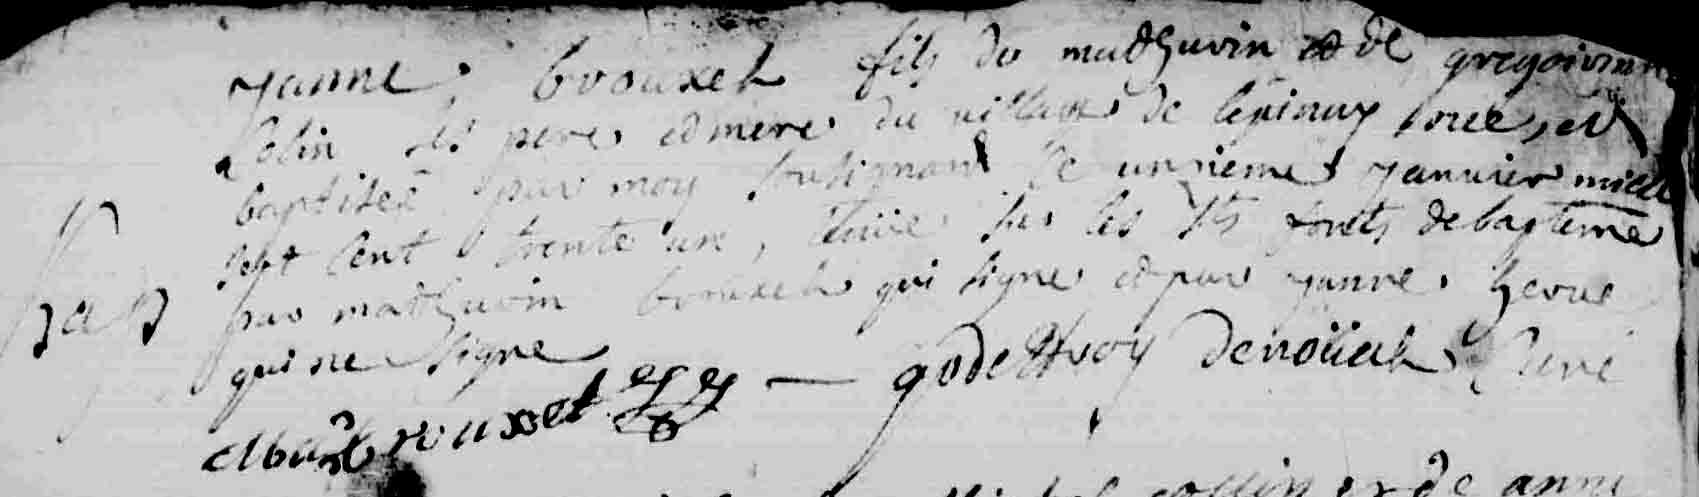 yanne brouxel fils de mathurin et de gregoirinne
Jolin ses pere et mere du village de lepinay nee, et
baptisee par moy sousignant le unzieme janvier mille
sept cent trente un, tenue sur les sts fonts de bapteme
par mathurin brouxel qui signe et par yanne herve
qui ne signe
bap
godeffroy denoüal Curé
rousset
collin et de anne